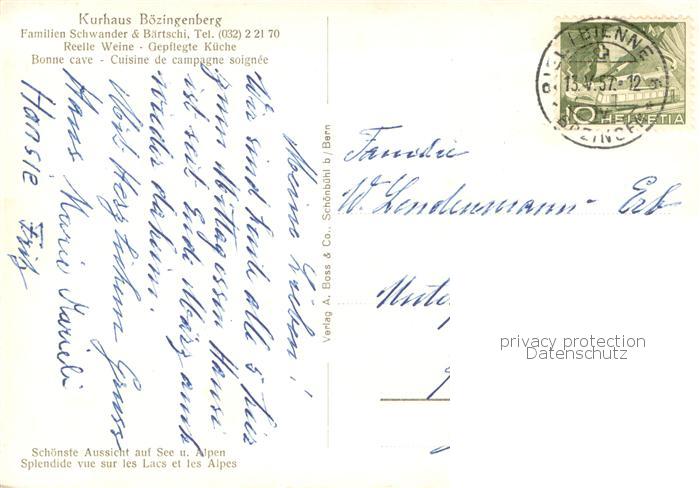 Kurhaus Bözingenberg
Familien Schwander & Bärtschi, Tel. (032) 2 21 70
Reelle Weine - Gepflegte Küche
Bonne cave - Cuisine de campagne soignée
Meine Lieben!
Wir sind heute alle 5 hier
zum Mittagessen Hansi
ist seit Ende März
wieder daheim.
Mit Herzlichem Gruss
Hans Marie Marieli
Hansie Fritz
Schönste Aussicht auf See u. Alpen
Splendide vue sur les Lacs et les Alpes
Verlag A. Boss & Co., Schönbühl b/Bern
BIEL/BIENNE
13.V.57.-12
BÖZINGEN
10 HELVETIA
Familie
W. Lendenmann - Erb
privacy protection
Datenschutz